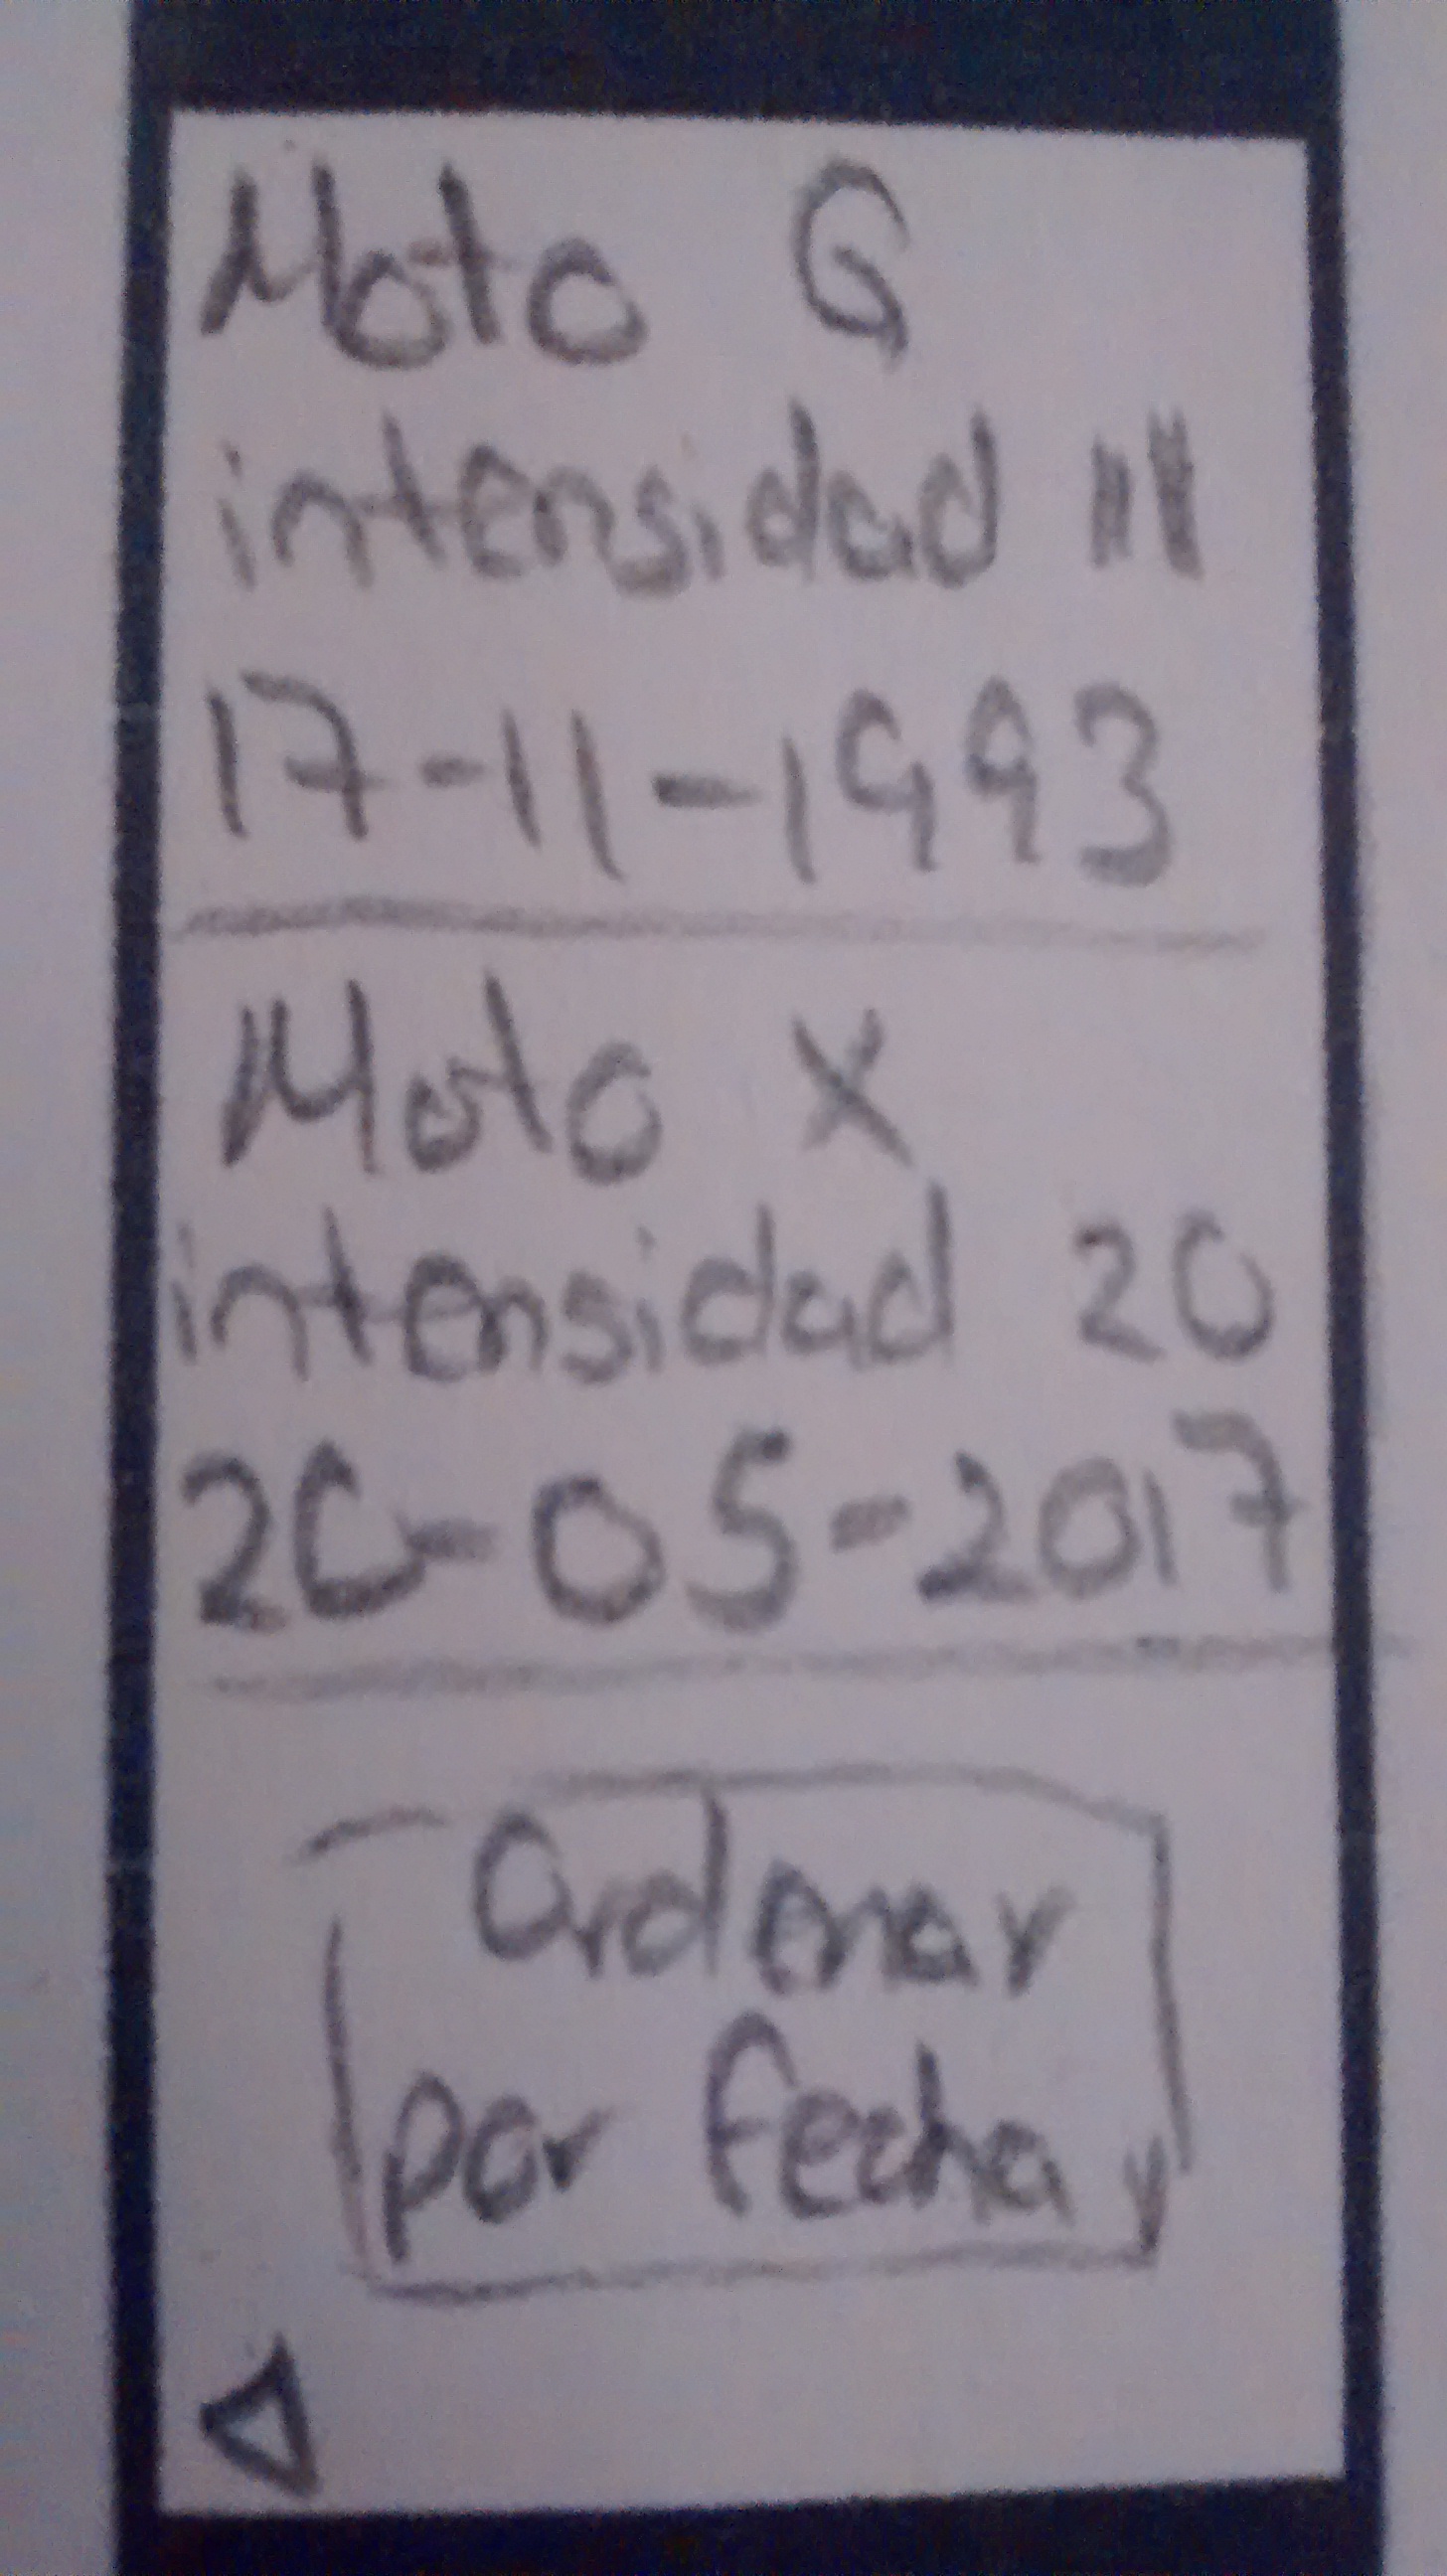 Moto G
intensidad 11
17-11-1993
Moto X
intensidad 20
20-05-2017
Ordenar
por fecha